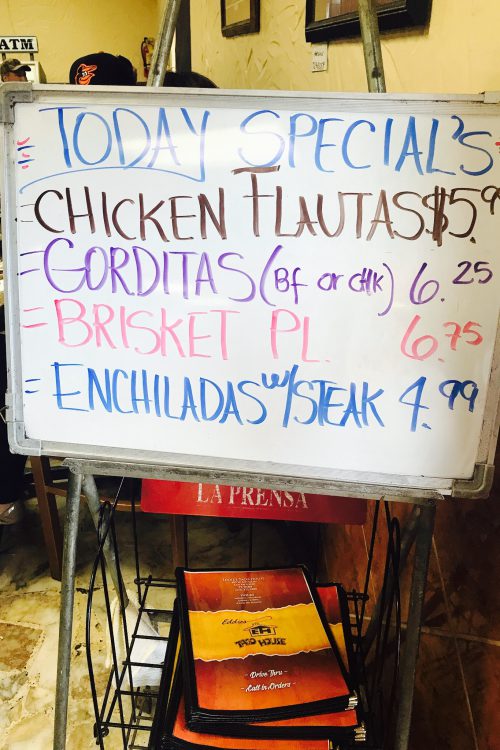 ATM
TODAY SPECIAL'S
=CHICKEN FLAUTAS $5.9
=GORDITAS (BF or CHK) 6.25
=BRISKET PL. 6.75
=ENCHILADAS w/STEAK 4.99
LA PRENSA
Eddies
EH
TACO HOUSE
- Drive Thru -
- Call in Orders -